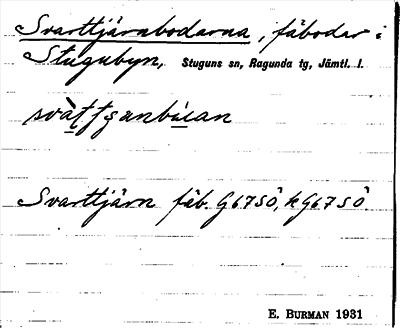 Svarttjärnbodarna, fäbodar i
Stugubyn, Stuguns sn, Ragunda tg, Jämtl. l.
Svarttjärn fäb. G67SÖ, kG67SÖ
E. BURMAN 1931